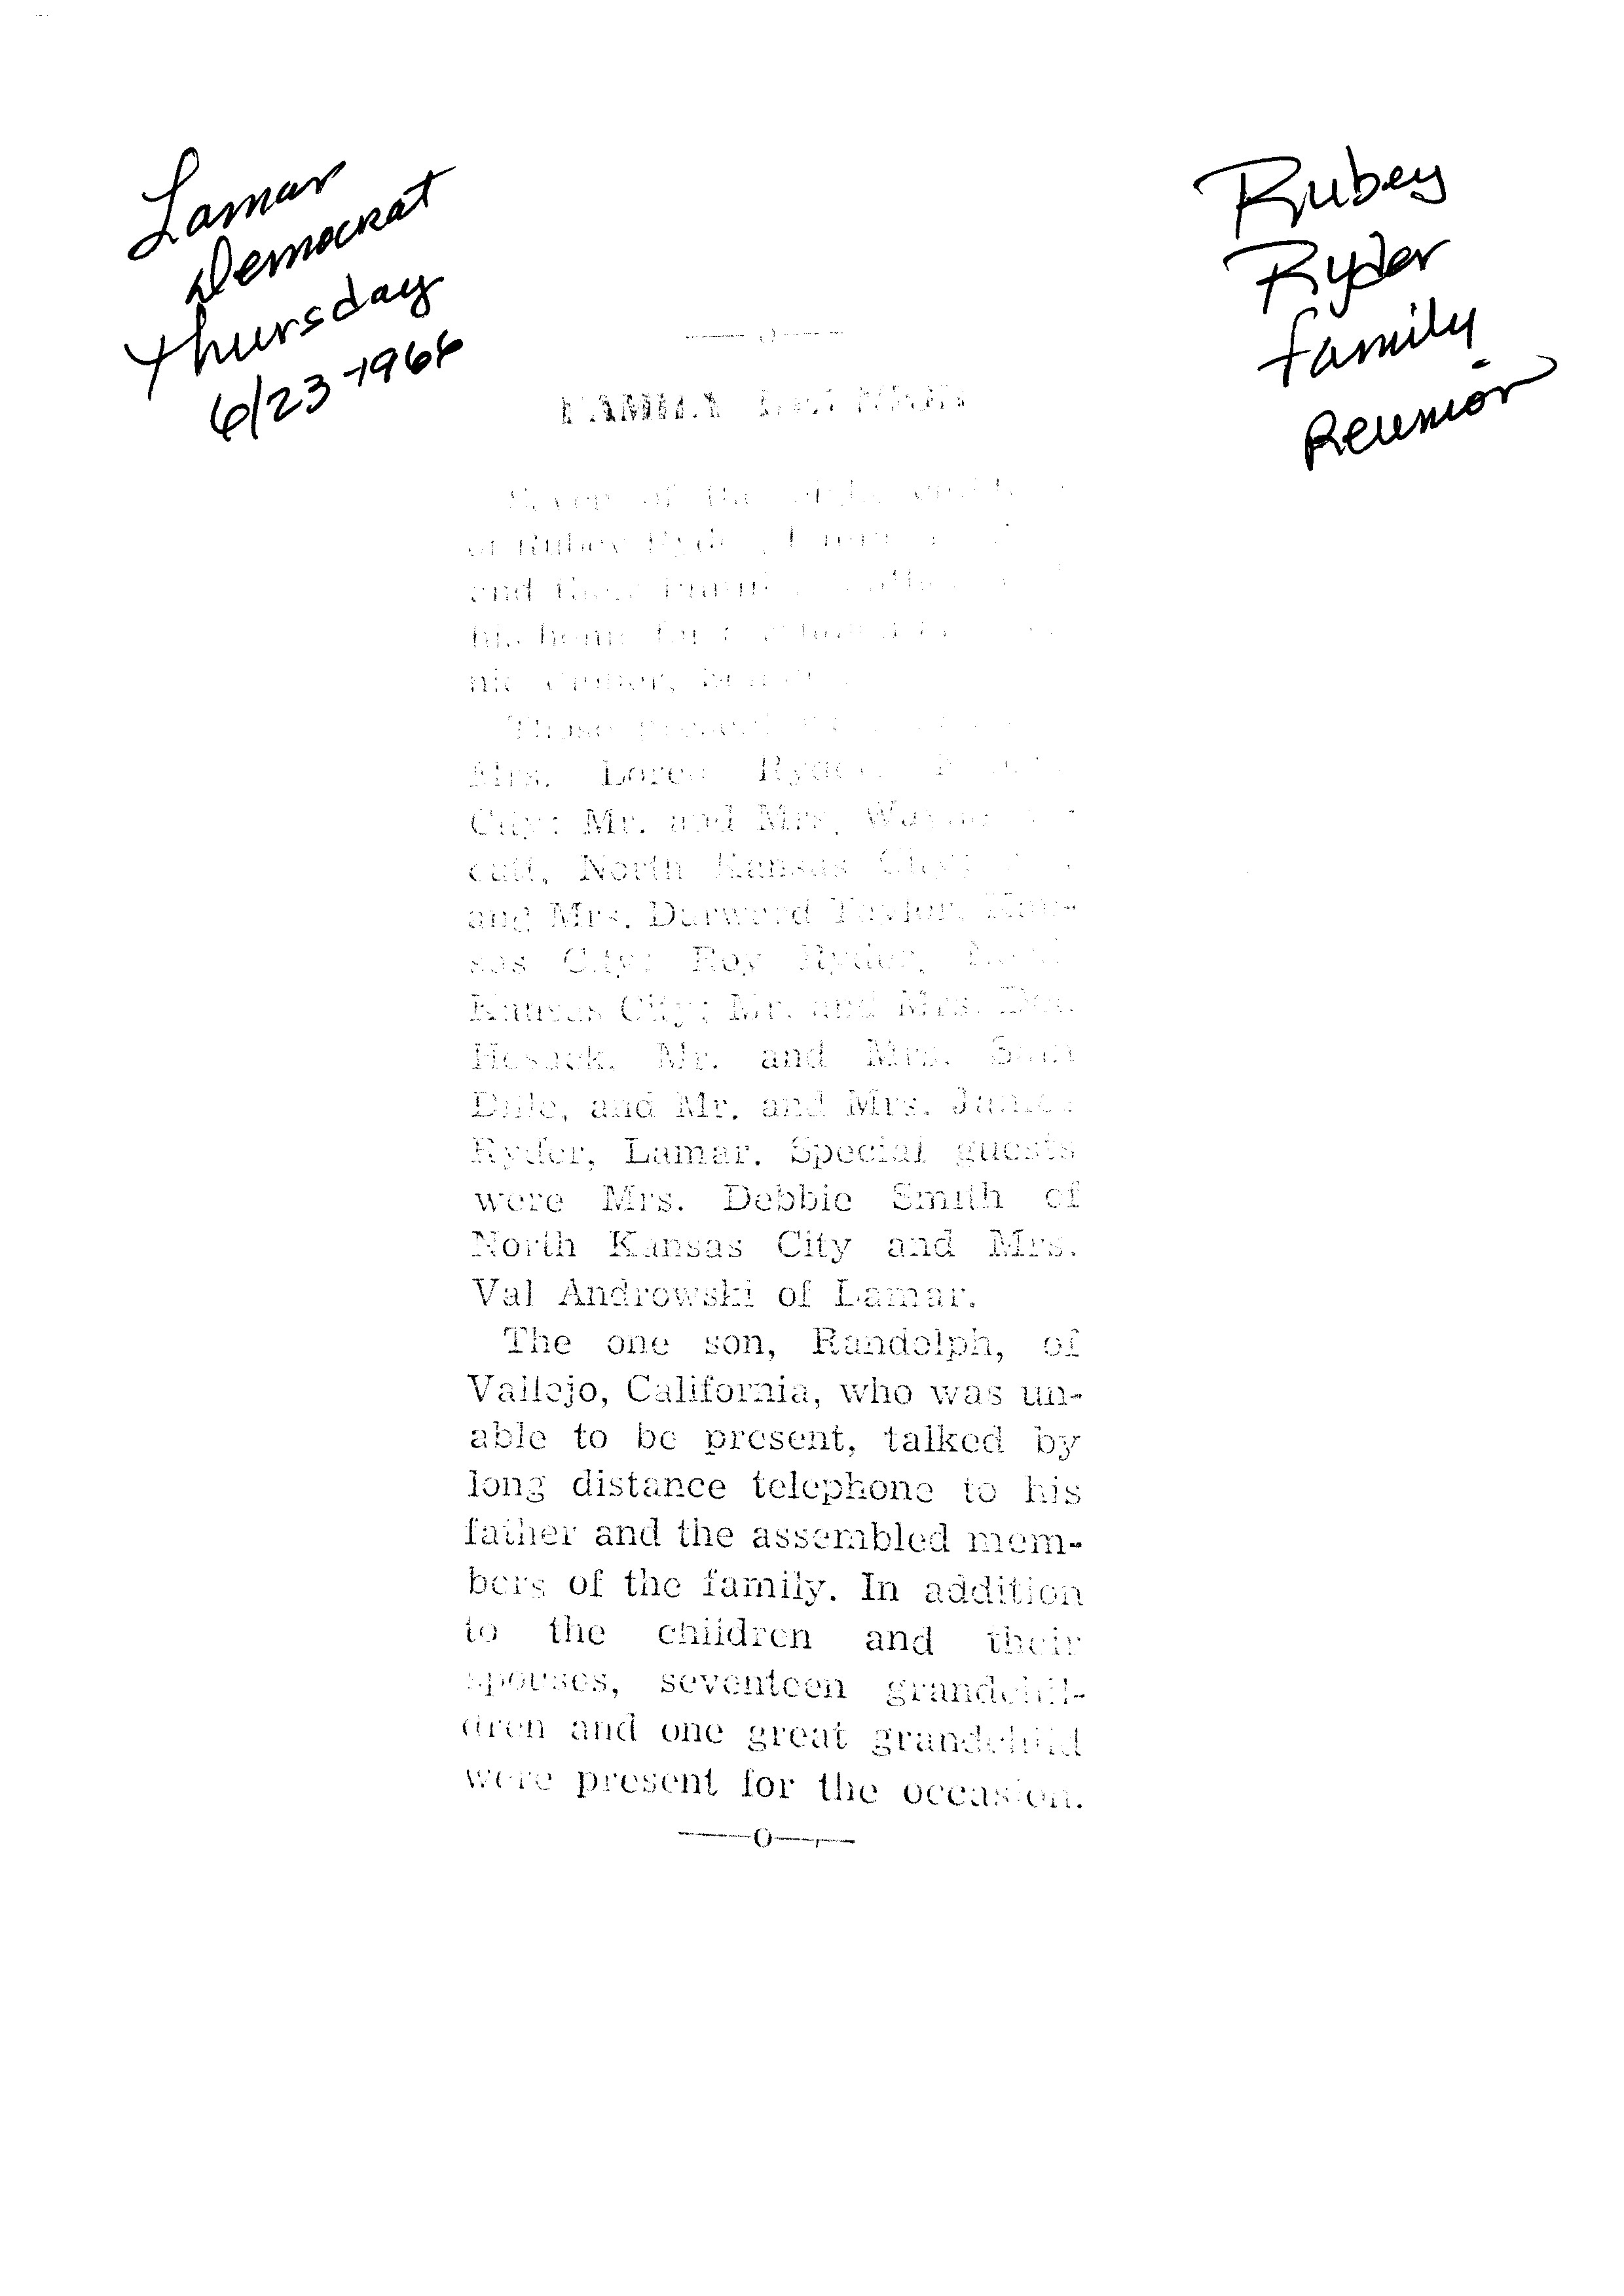 Lamar
Democrat
Thursday
6/23-1966
Rubey
Ryder
family
Reunion
FAMILY
of the
of Rubey Ryder,
and their
his home for
nic dinner,
Those present
Mrs. Loren Ryder,
City; Mr. and Mrs. Wayne
cutt, North Kansas City;
and Mrs. Durward Taylor, Kan-
sas City; Roy Ryder,
Kansas City; Mr. and Mrs.
Hosack, Mr. and Mrs. Sam
Dale, and Mr. and Mrs. James
Ryder, Lamar. Special guests
were Mrs. Debbie Smith of
North Kansas City and Mrs.
Val Androwski of Lamar.
The one son, Randolph, of
Vallejo, California, who was un-
able to be present, talked by
long distance telephone to his
father and the assembled mem-
bers of the family. In addition
to the children and their
spouses, seventeen grandchil-
dren and one great grandchild
were present for the occasion.
——O——